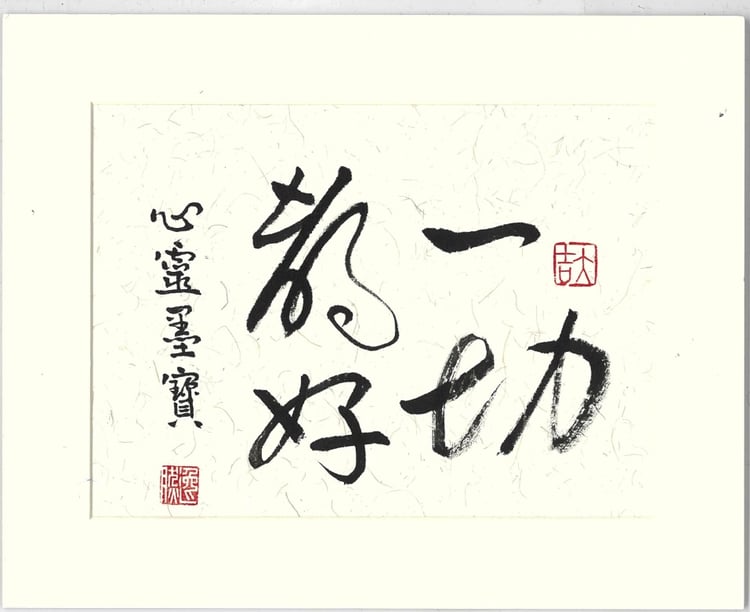 大吉
一切
都好
心靈墨寶